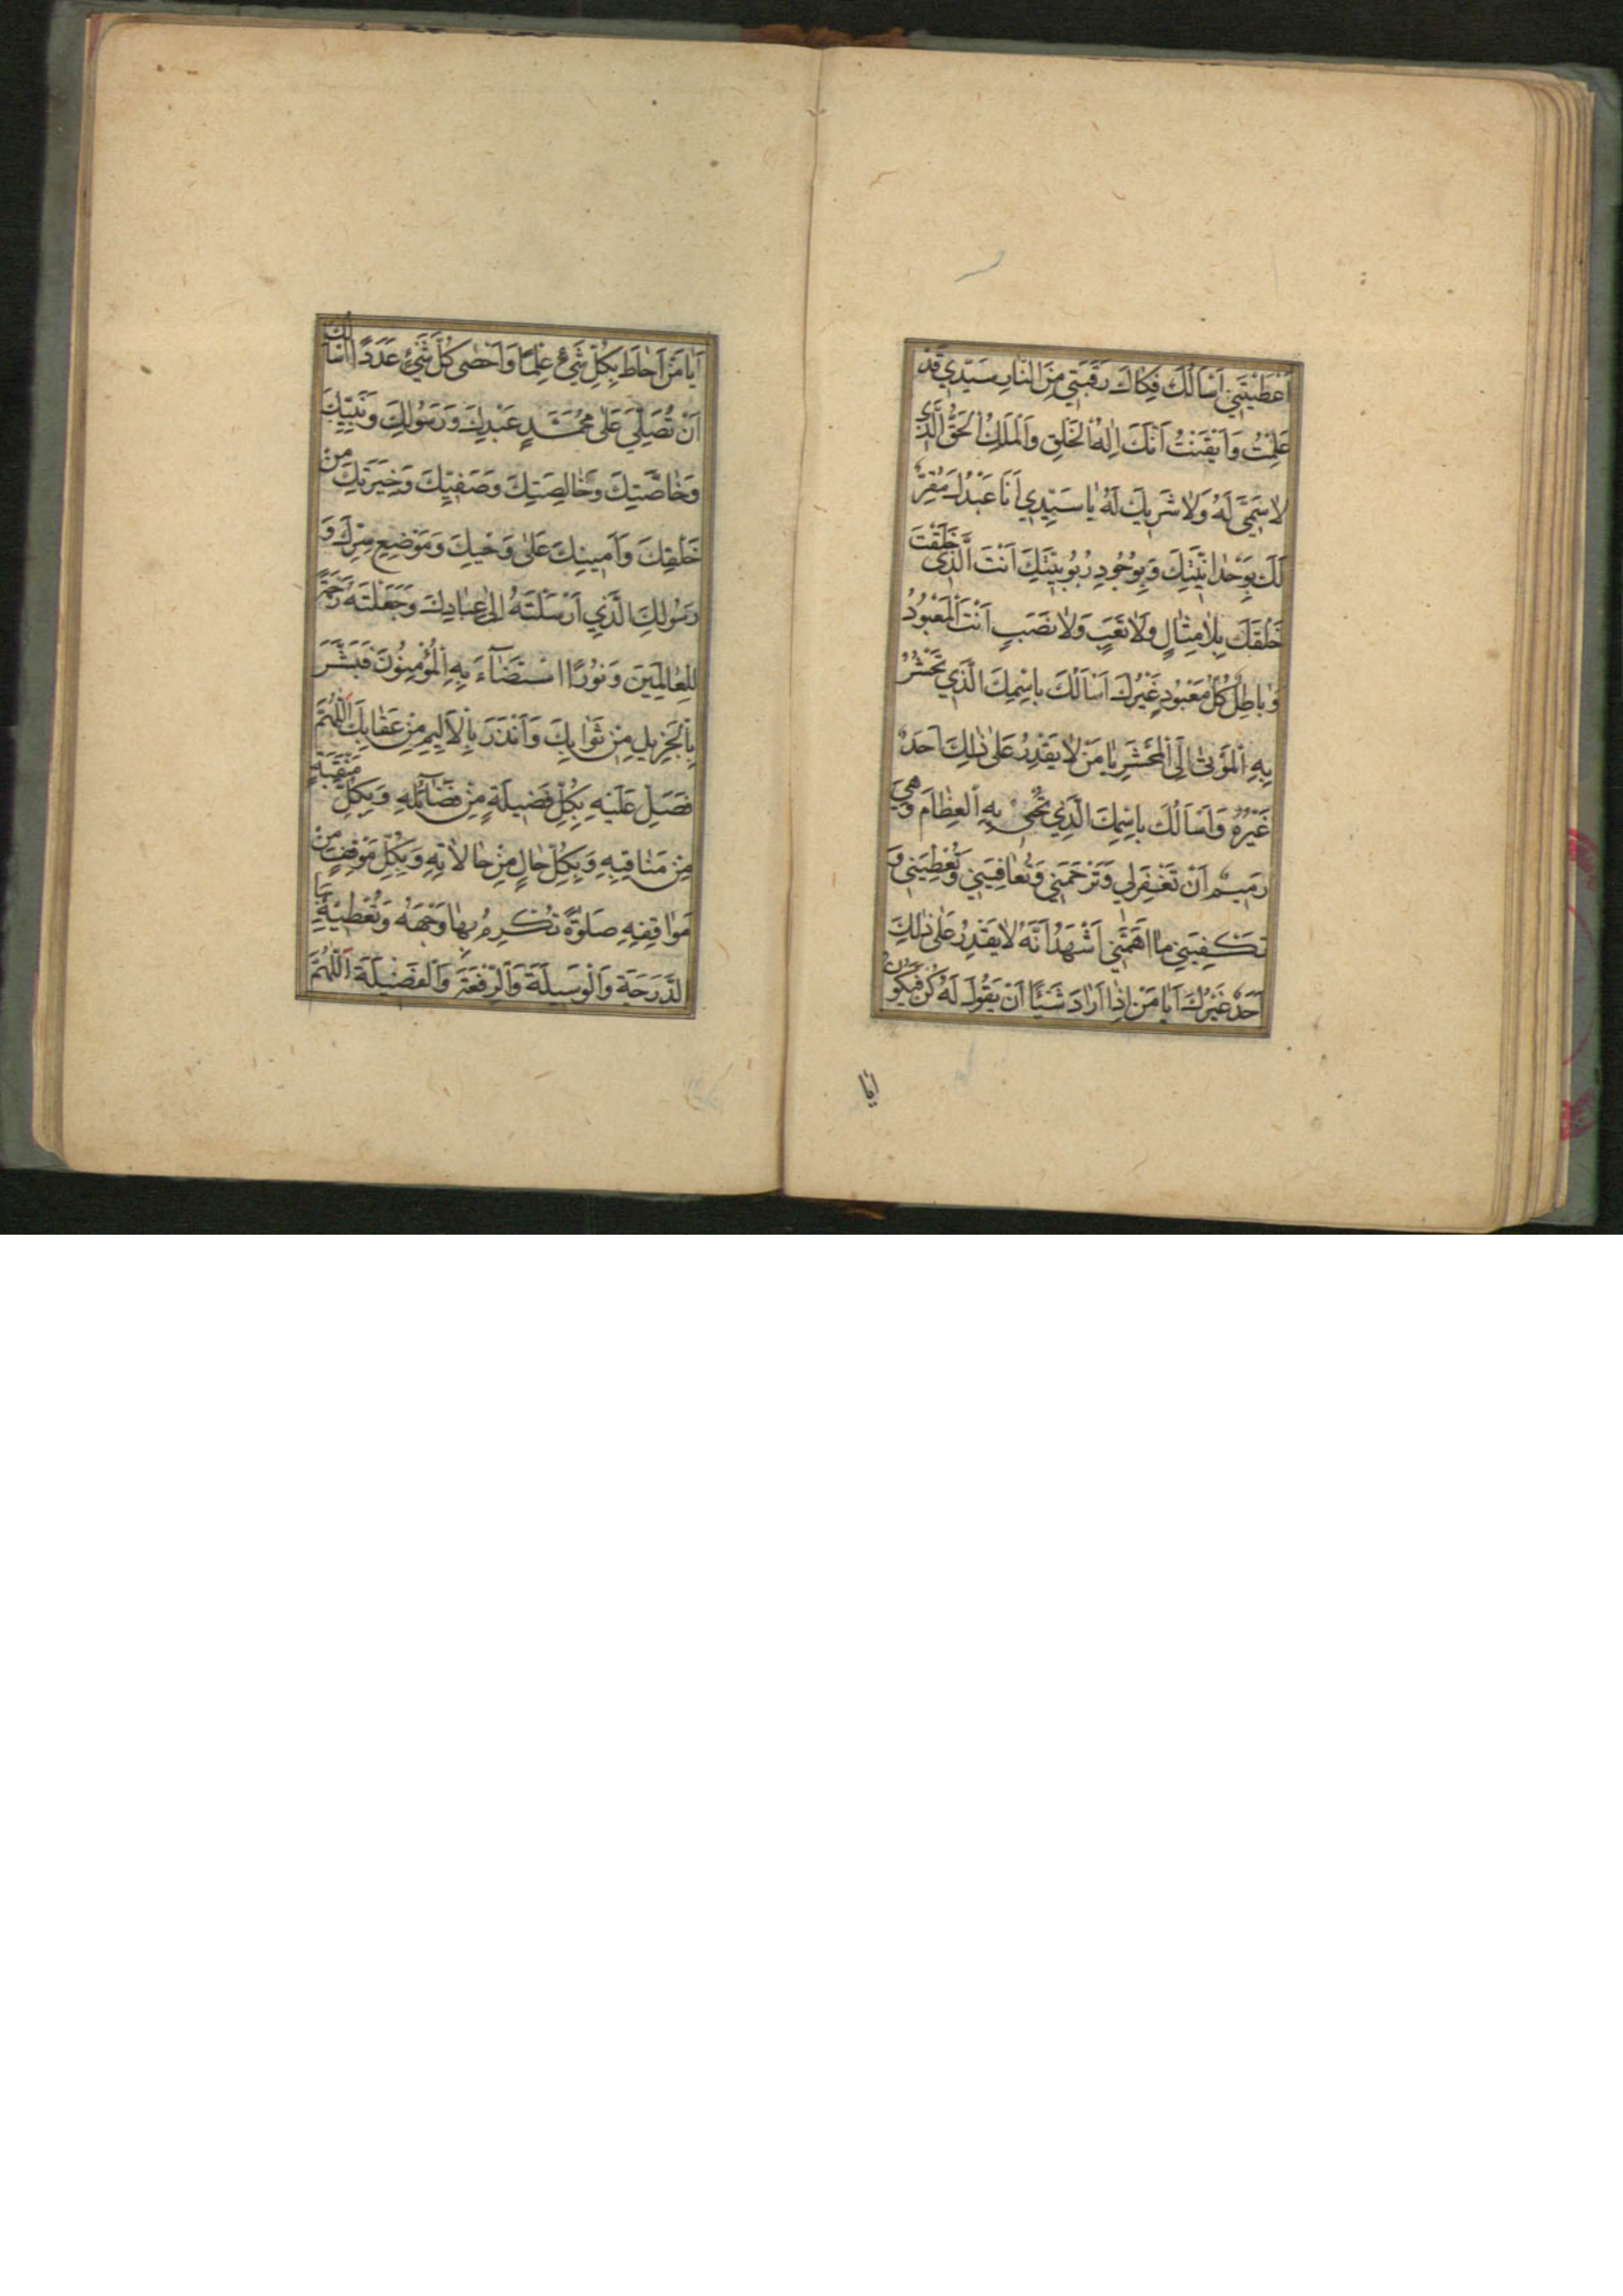 أَعْطَيْتَنِي أَسْأَلُكَ فِكَاكَ رَقَبَتِي مِنَ النَّارِ سَيِّدِي قَدْ
عَلِمْتُ وَأَيْقَنْتُ أَنَّكَ إِلٰهُ الْخَلْقِ وَالْمَلِكُ الْحَقُّ الَّذِي
لَا سَمِيَّ لَهُ وَلَا شَرِيكَ لَهُ يَا سَيِّدِي أَنَا عَبْدُكَ مُقِرٌّ
لَكَ بِوَحْدَانِيَّتِكَ وَبِوُجُودِ رُبُوبِيَّتِكَ أَنْتَ الَّذِي خَلَقْتَ
خَلْقَكَ بِلَا مِثَالٍ وَلَا تَعَبٍ وَلَا نَصَبٍ أَنْتَ الْمَعْبُودُ
وَبَاطِلٌ كُلُّ مَعْبُودٍ غَيْرُكَ أَسْأَلُكَ بِاسْمِكَ الَّذِي تَحْشُرُ
بِهِ الْمَوْتَىٰ إِلَى الْمَحْشَرِ يَا مَنْ لَا يَقْدِرُ عَلَىٰ ذٰلِكَ أَحَدٌ
غَيْرُهُ وَأَسْأَلُكَ بِاسْمِكَ الَّذِي تُحْيِي بِهِ الْعِظَامَ وَهِيَ
رَمِيمٌ أَنْ تَغْفِرَ لِي وَتَرْحَمَنِي وَتُعَافِيَنِي وَتُعْطِيَنِي وَ
تَكْفِيَنِي مَا أَهَمَّنِي أَشْهَدُ أَنَّهُ لَا يَقْدِرُ عَلَىٰ ذٰلِكَ
أَحَدٌ غَيْرُكَ أَيَا مَنْ إِذَا أَرَادَ شَيْئًا أَنْ يَقُولَ لَهُ كُنْ فَيَكُونُ
أيا
أَيَا مَنْ أَحَاطَ بِكُلِّ شَيْءٍ عِلْمًا وَأَحْصَىٰ كُلَّ شَيْءٍ عَدَدًا أَسْأَلُكَ
أَنْ تُصَلِّيَ عَلَىٰ مُحَمَّدٍ عَبْدِكَ وَرَسُولِكَ وَنَبِيِّكَ
وَخَاصَّتِكَ وَخَالِصَتِكَ وَصَفِيِّكَ وَخِيَرَتِكَ مِنْ
خَلْقِكَ وَأَمِينِكَ عَلَىٰ وَحْيِكَ وَمَوْضِعِ سِرِّكَ وَ
رَسُولِكَ الَّذِي أَرْسَلْتَهُ إِلَىٰ عِبَادِكَ وَجَعَلْتَهُ رَحْمَةً
لِلْعَالَمِينَ وَنُورًا اسْتَضَاءَ بِهِ الْمُؤْمِنُونَ فَبَشَّرَ
بِالْجَزِيلِ مِنْ ثَوَابِكَ وَأَنْذَرَ بِالْأَلِيمِ مِنْ عِقَابِكَ اللّٰهُمَّ
فَصَلِّ عَلَيْهِ بِكُلِّ فَضِيلَةٍ مِنْ فَضَائِلِهِ وَبِكُلِّ مَنْقَبَةٍ
مِنْ مَنَاقِبِهِ وَبِكُلِّ حَالٍ مِنْ حَالَاتِهِ وَبِكُلِّ مَوْقِفٍ مِنْ
مَوَاقِفِهِ صَلٰوةً تُكْرِمُ بِهَا وَجْهَهُ وَتُعْطِيهِ بِهَا
الدَّرَجَةَ وَالْوَسِيلَةَ وَالرِّفْعَةَ وَالْفَضِيلَةَ اللّٰهُمَّ